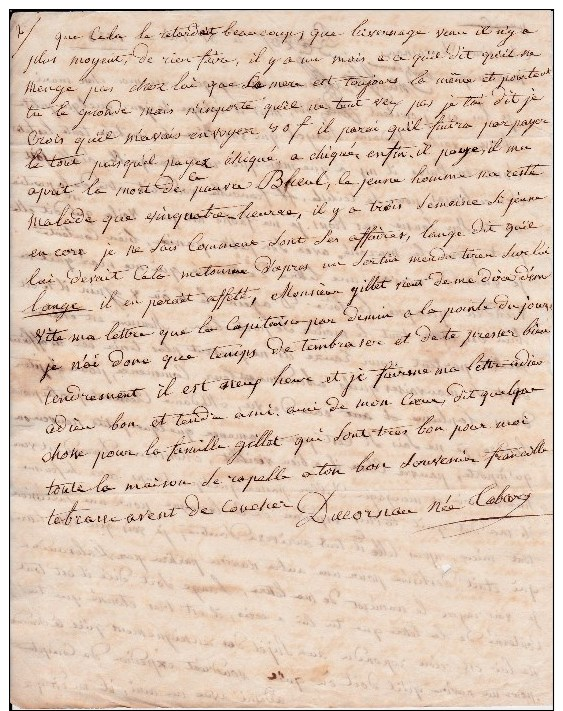 que Cela le retardait beaucoup, que livernage venu il n'y a
plus moyent, de rien faire, il y a un mois a ce qu'il dit qu'il ne
menge pas chez lui que la mere est toujours la même et pourtent
tu le gronde mais n'importe qu'il ne tout pas je tai dit je
Crois qu'il mavais envoyer 20 f il parai qu'il faudra par payer
le tout puisquil payez chiqué, a chiquée enfin, il paye, il ma
aprit la mort de la pauvre Bheul, le jeune homme na resté
malade que cinquatre heures, il y a trois semeine si jeune
en core je ne sais Comment sont ses affaires, lange dit qu'il
lui devait Cela metonne d'apres un
lange il en parait affété, Monsieur gillet vien de me dire d'en
vite ma lettre que le Capitaine par demin a la pointe du jour
je n'ai donc que temps de tembraser et de te presser bien
tendrement il est neuf heur et je fairme ma lettre adieu
adieu bon et tendre ami. ami de mon Cœur, dit quelque
chose pour la famille gillot qui sont tres bon pour moi
toute la maison se rapelle a ton bon souvenir
tebrasse avent de coucher Ducornau née Cabary